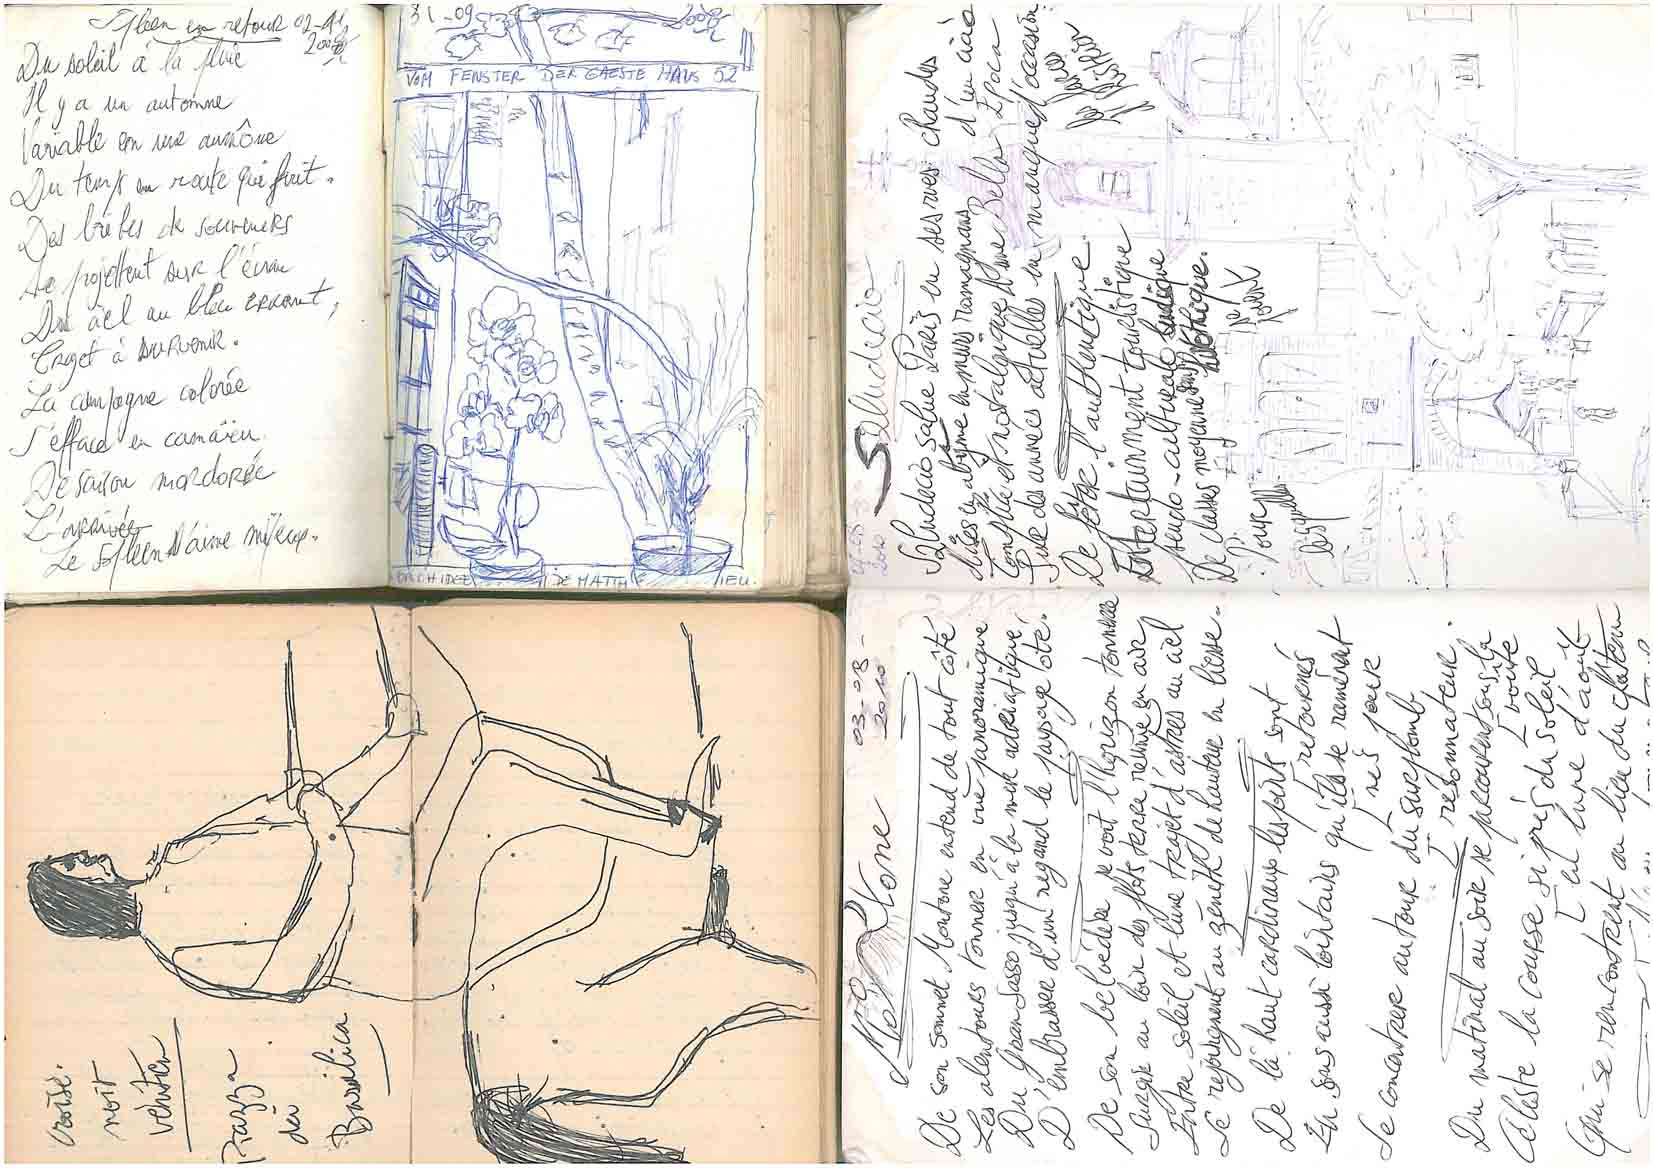 Spleen en retour 02-11
Du soleil à la pluie
Il y a un automne
Variable en une aumône
Du temps en route qui fuit.
Des bribes de souvenirs
Se projettent sur l'écran
Du ciel au bleu errant,
Projet à survenir.
La campagne colorée
S'efface en camaïeu
De saison mordorée
L'arrivée
Le spleen d'aime mieux.
31-09
VOM FENSTER DER GAESTE HAUS 52
ORCHIDEE DE MATTHIEU.
Saludecio
2010
Saludecio salue Paris en ses rues chaudes
mises en abîme en murs romagnans d'un ciao
Complice et nostalgique d'une Bella Epoca
Juke des années actuelles en manque d'occasion
De fêter l'authentique.
Entertainment touristique
Pseudo-culturale
De classes moyennes sans
Pour
lesquelles
croisé.
noir
vêntu
Piazza
dei
Basilica
Montone
03-08-
2010
De son sommet Montone entend de tout côté
Les alentours tonner en vue panoramique
Du Gran Sasso jusqu'à la mer adriatique
D'embrasser d'un regard le paysage ôté.
De son belvédère se voit l'horizon
Surgie au loin des flots terre remue en air
Entre soleil et lune trajet d'astres au ciel
Se rejoignent au zénith de hauteur en liesse.
De là-haut cardinaux les points sont
retournés
En sons aussi lointains qu'ils se ramènent
Se concentrer autour du surplomb
résonnateur.
Du matinal au soir se parcourent sous la
voute
Céleste la course si près du soleil
Et en lune d'août
Qui se rencontrent au lieu du